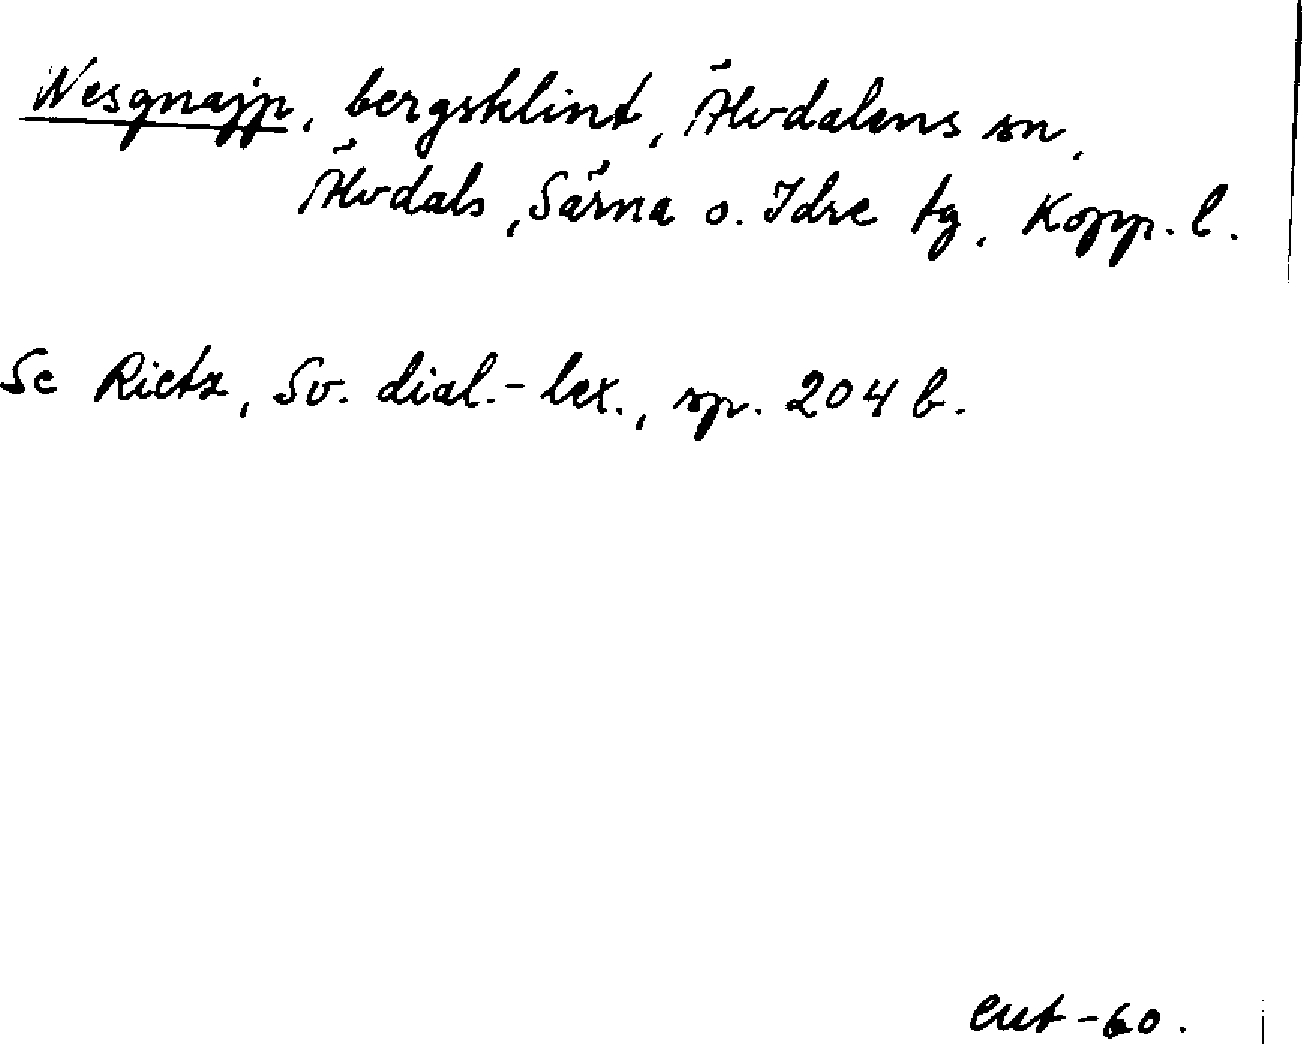 Nesgnajp, bergsklint, Älvdalens sn,
Älvdals, Särna o. Idre tg, Kopp. l.
Se Rietz, Sv. dial.-lex., sp. 204 b.
eut -60.